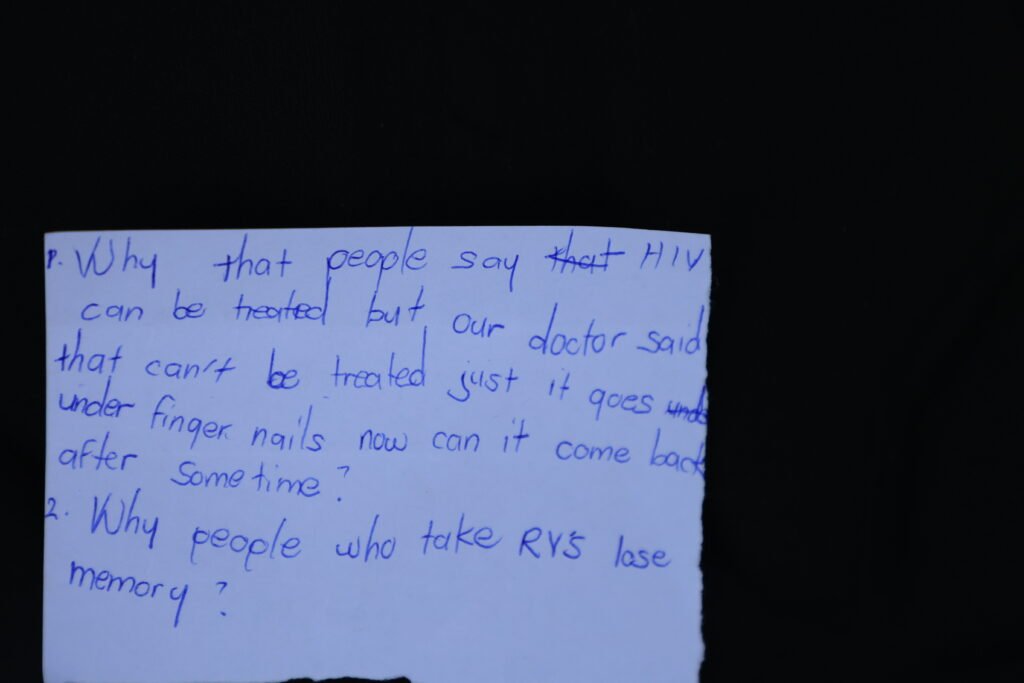 1. Why that people say that HIV
can be treated but our doctor said
that can't be treated just it goes
under finger nails now can it come back
after sometime?
2. Why people who take RVS lose
memory?